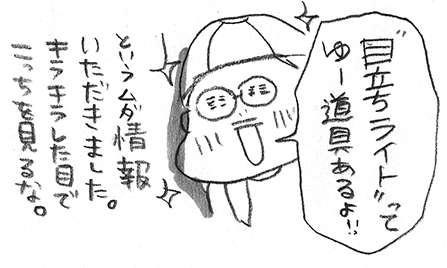 "目立ちライト"って
ゆー道具あるよ!!
というムダ情報
いただきました。
キラキラした目で
こっちを見るな。